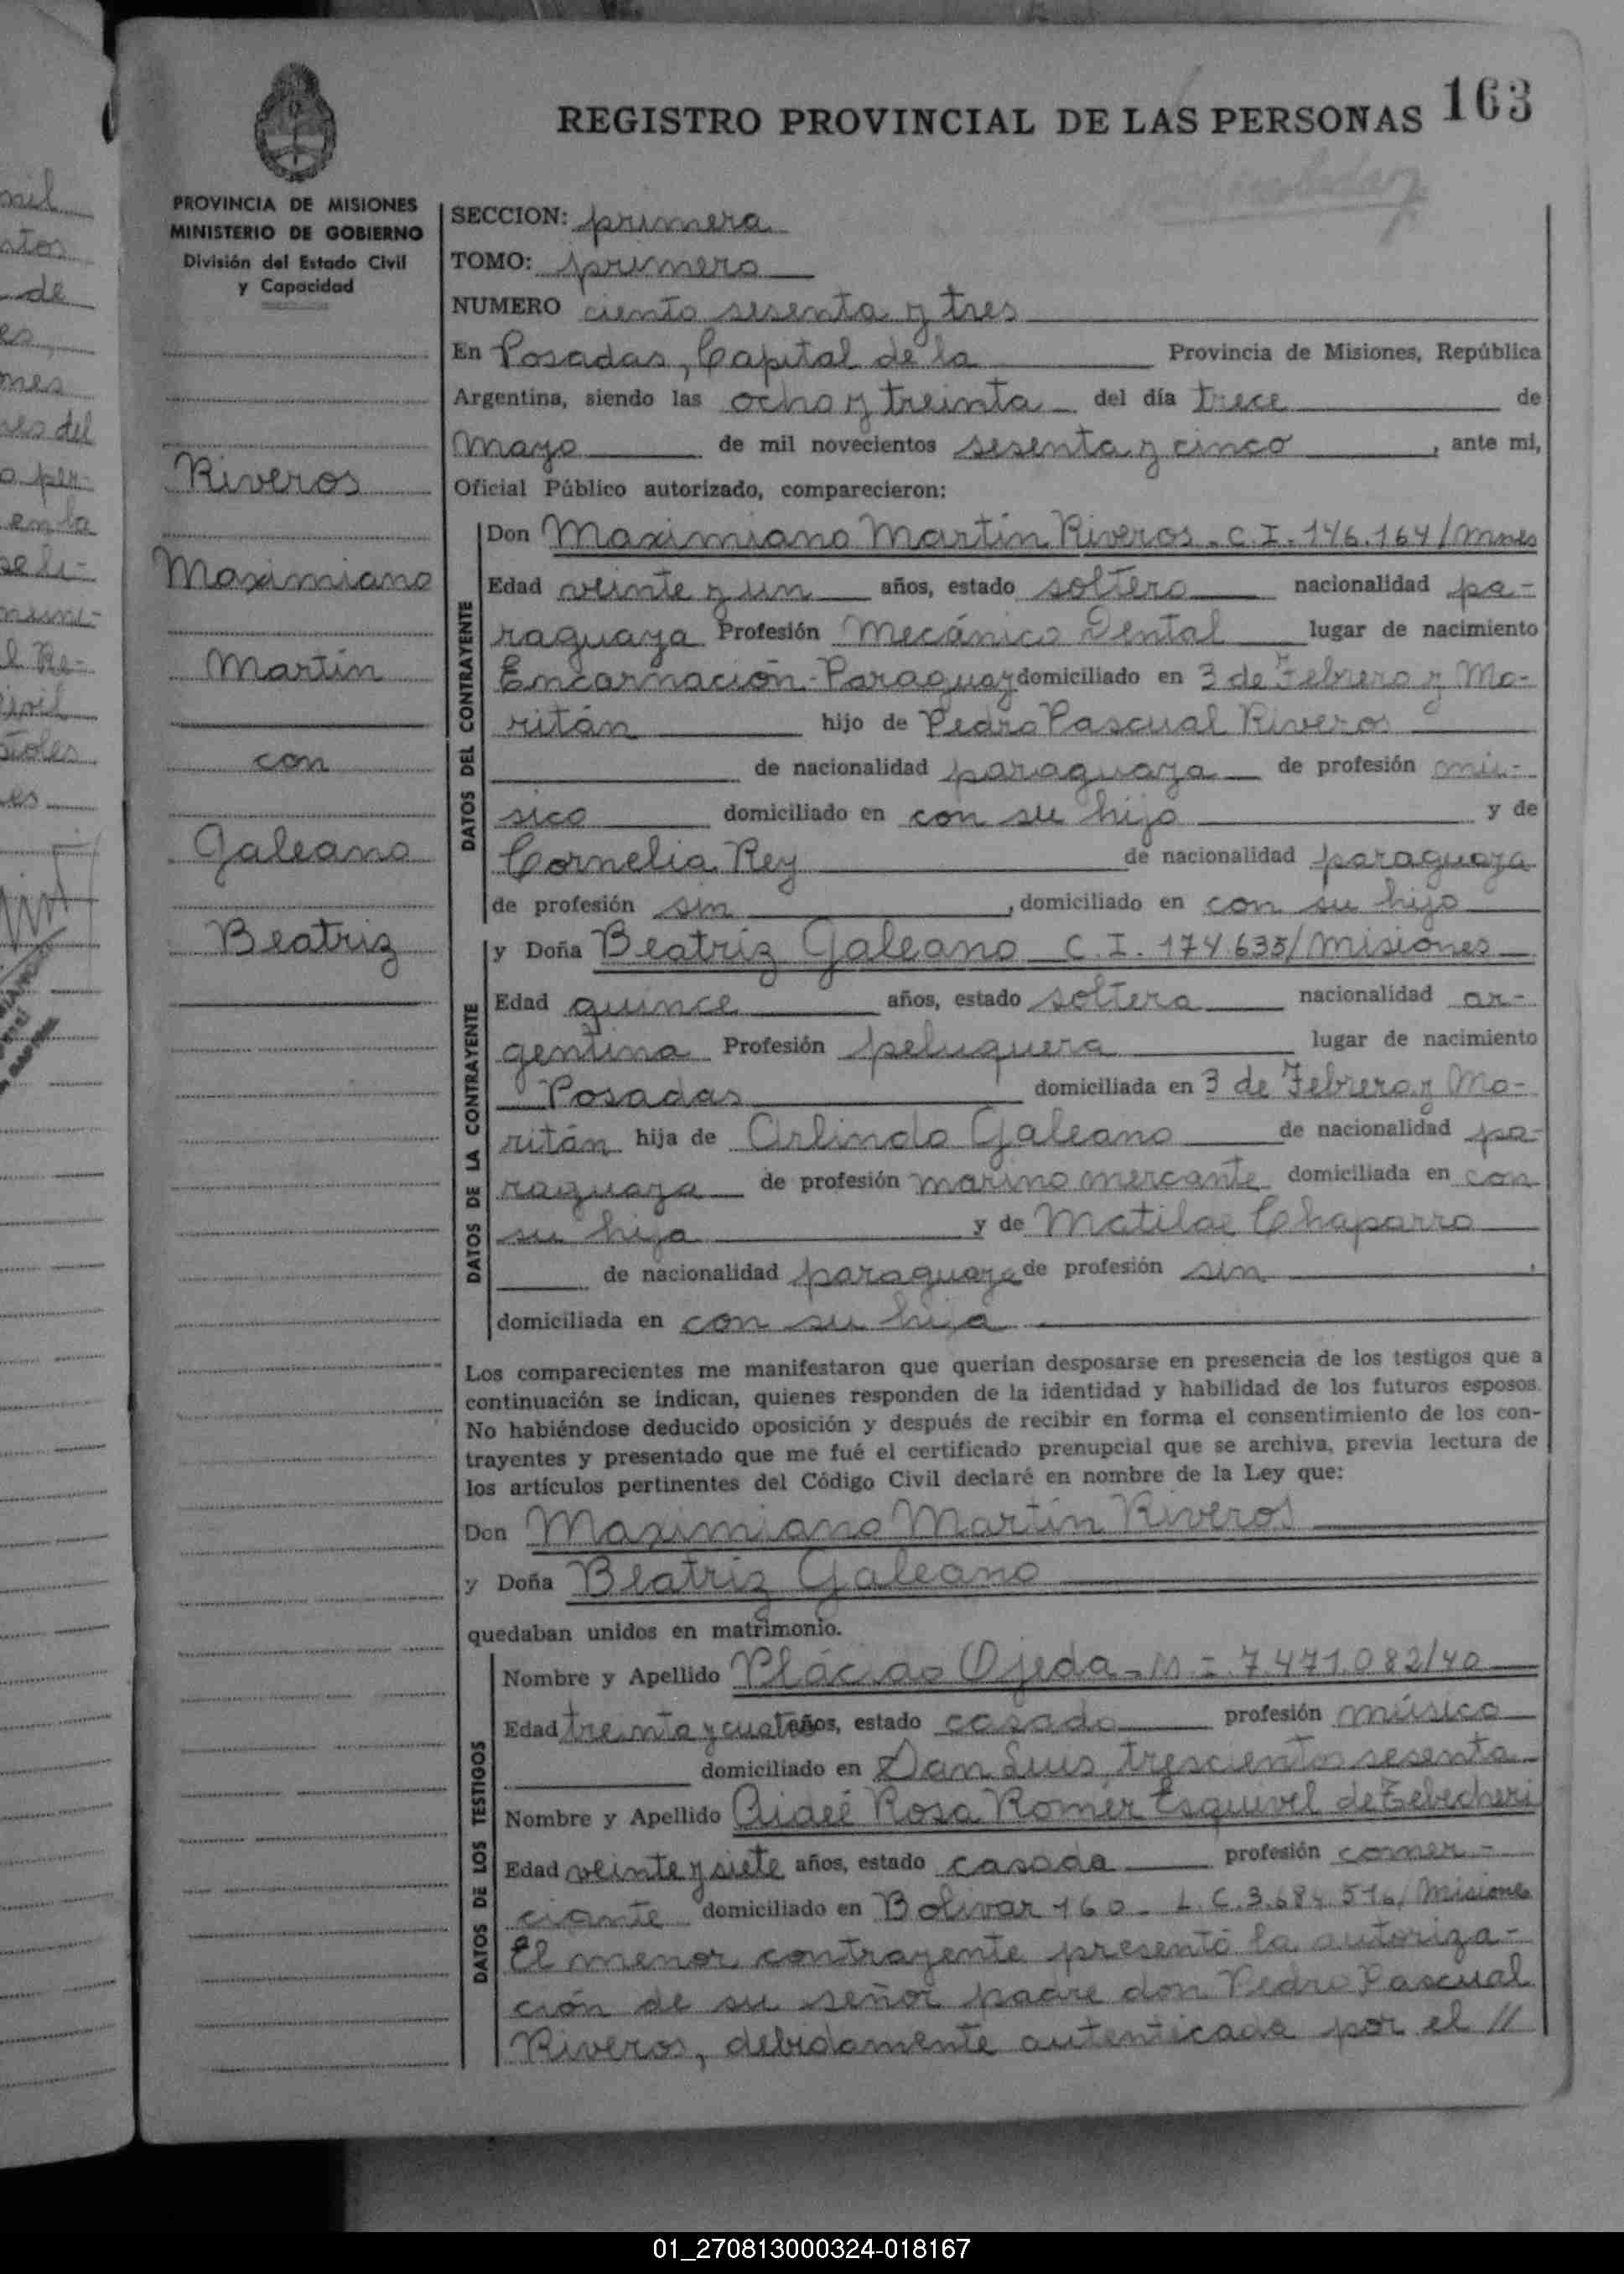 REGISTRO PROVINCIAL DE LAS PERSONAS 163
PROVINCIA DE MISIONES
MINISTERIO DE GOBIERNO
División del Estado Civil
y Capacidad
Riveros
Maximiano
Martín
con
Galeano
Beatriz
SECCION: primera
TOMO: primero
NUMERO ciento sesenta y tres
En Posadas, Capital de la Provincia de Misiones, República
Argentina, siendo las ocho y treinta del día trece de
mayo de mil novecientos sesenta y cinco, ante mi,
Oficial Público autorizado, comparecieron:
DATOS DEL CONTRAYENTE
Don Maximiano Martín Riveros. C.I. 146.164/Mnes
Edad veinte y un años, estado soltero nacionalidad pa-
raguaya Profesión Mecánico Dental lugar de nacimiento
Encarnación-Paraguay domiciliado en 3 de Febrero y Ma-
ritán hijo de Pedro Pascual Riveros
de nacionalidad paraguaya de profesión mú-
sico domiciliado en con su hijo y de
Cornelia Rey de nacionalidad paraguaya
de profesión sin, domiciliado en con su hijo
DATOS DE LA CONTRAYENTE
y Doña Beatríz Galeano C.I. 174.635/Misiones
Edad quince años, estado soltera nacionalidad ar-
gentina Profesión peluquera lugar de nacimiento
Posadas domiciliada en 3 de Febrero y Ma-
ritán hija de Arlindo Galeano de nacionalidad pa-
raguaya de profesión marino mercante domiciliada en con
su hija y de Matilde Chaparro
de nacionalidad paraguaya de profesión sin,
domiciliada en con su hija
Los comparecientes me manifestaron que querían desposarse en presencia de los testigos que a
continuación se indican, quienes responden de la identidad y habilidad de los futuros esposos.
No habiéndose deducido oposición y después de recibir en forma el consentimiento de los con-
trayentes y presentado que me fué el certificado prenupcial que se archiva, previa lectura de
los artículos pertinentes del Código Civil declaré en nombre de la Ley que:
Don Maximiano Martín Riveros
y Doña Beatríz Galeano
quedaban unidos en matrimonio.
DATOS DE LOS TESTIGOS
Nombre y Apellido Plácido Ojeda - M - 7.471.082/40
Edad treinta y cuatro años, estado casado profesión músico
domiciliado en San Luis, trescientos sesenta
Nombre y Apellido Aideé Rosa Romer Esquivel de
Edad veinte y siete años, estado casada profesión comer-
ciante domiciliado en Bolívar 160 - L.C. 3.684.516/Misiones
El menor contrayente presentó la autoriza-
ción de su señor padre don Pedro Pascual
Riveros, debidamente autenticada por el //
01_270813000324-018167